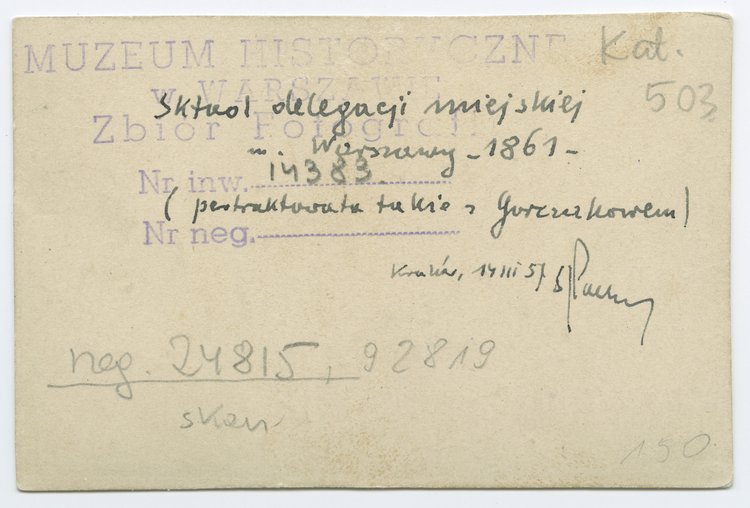 MUZEUM HISTORYCZNE
w WARSZAWIE
Zbiór Fotografii
Kat.
503
Skład delegacji miejskiej
m. Warszawy - 1861 -
Nr inw. 14383
(pertraktowała także z Gorczakowem)
Nr neg.
Kraków, 14 III 57
neg. 24815, 92819
skan
150